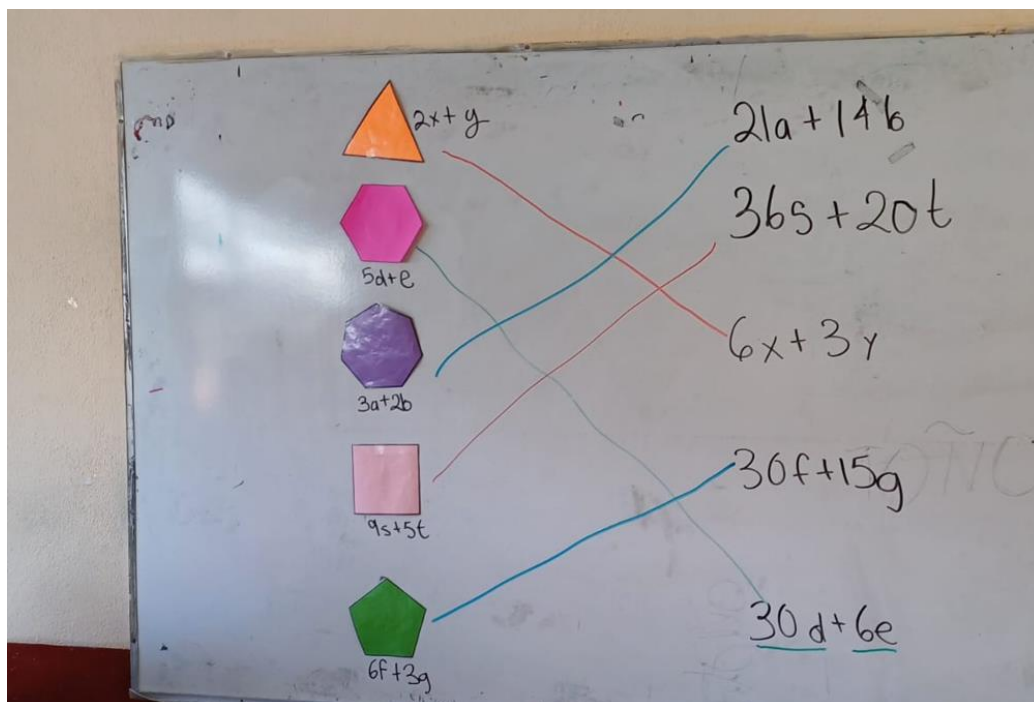 2x+y
5d+e
3a+2b
9s+5t
6f+3g
21a+14b
36s+20t
6x+3y
30f+15g
30d+6e